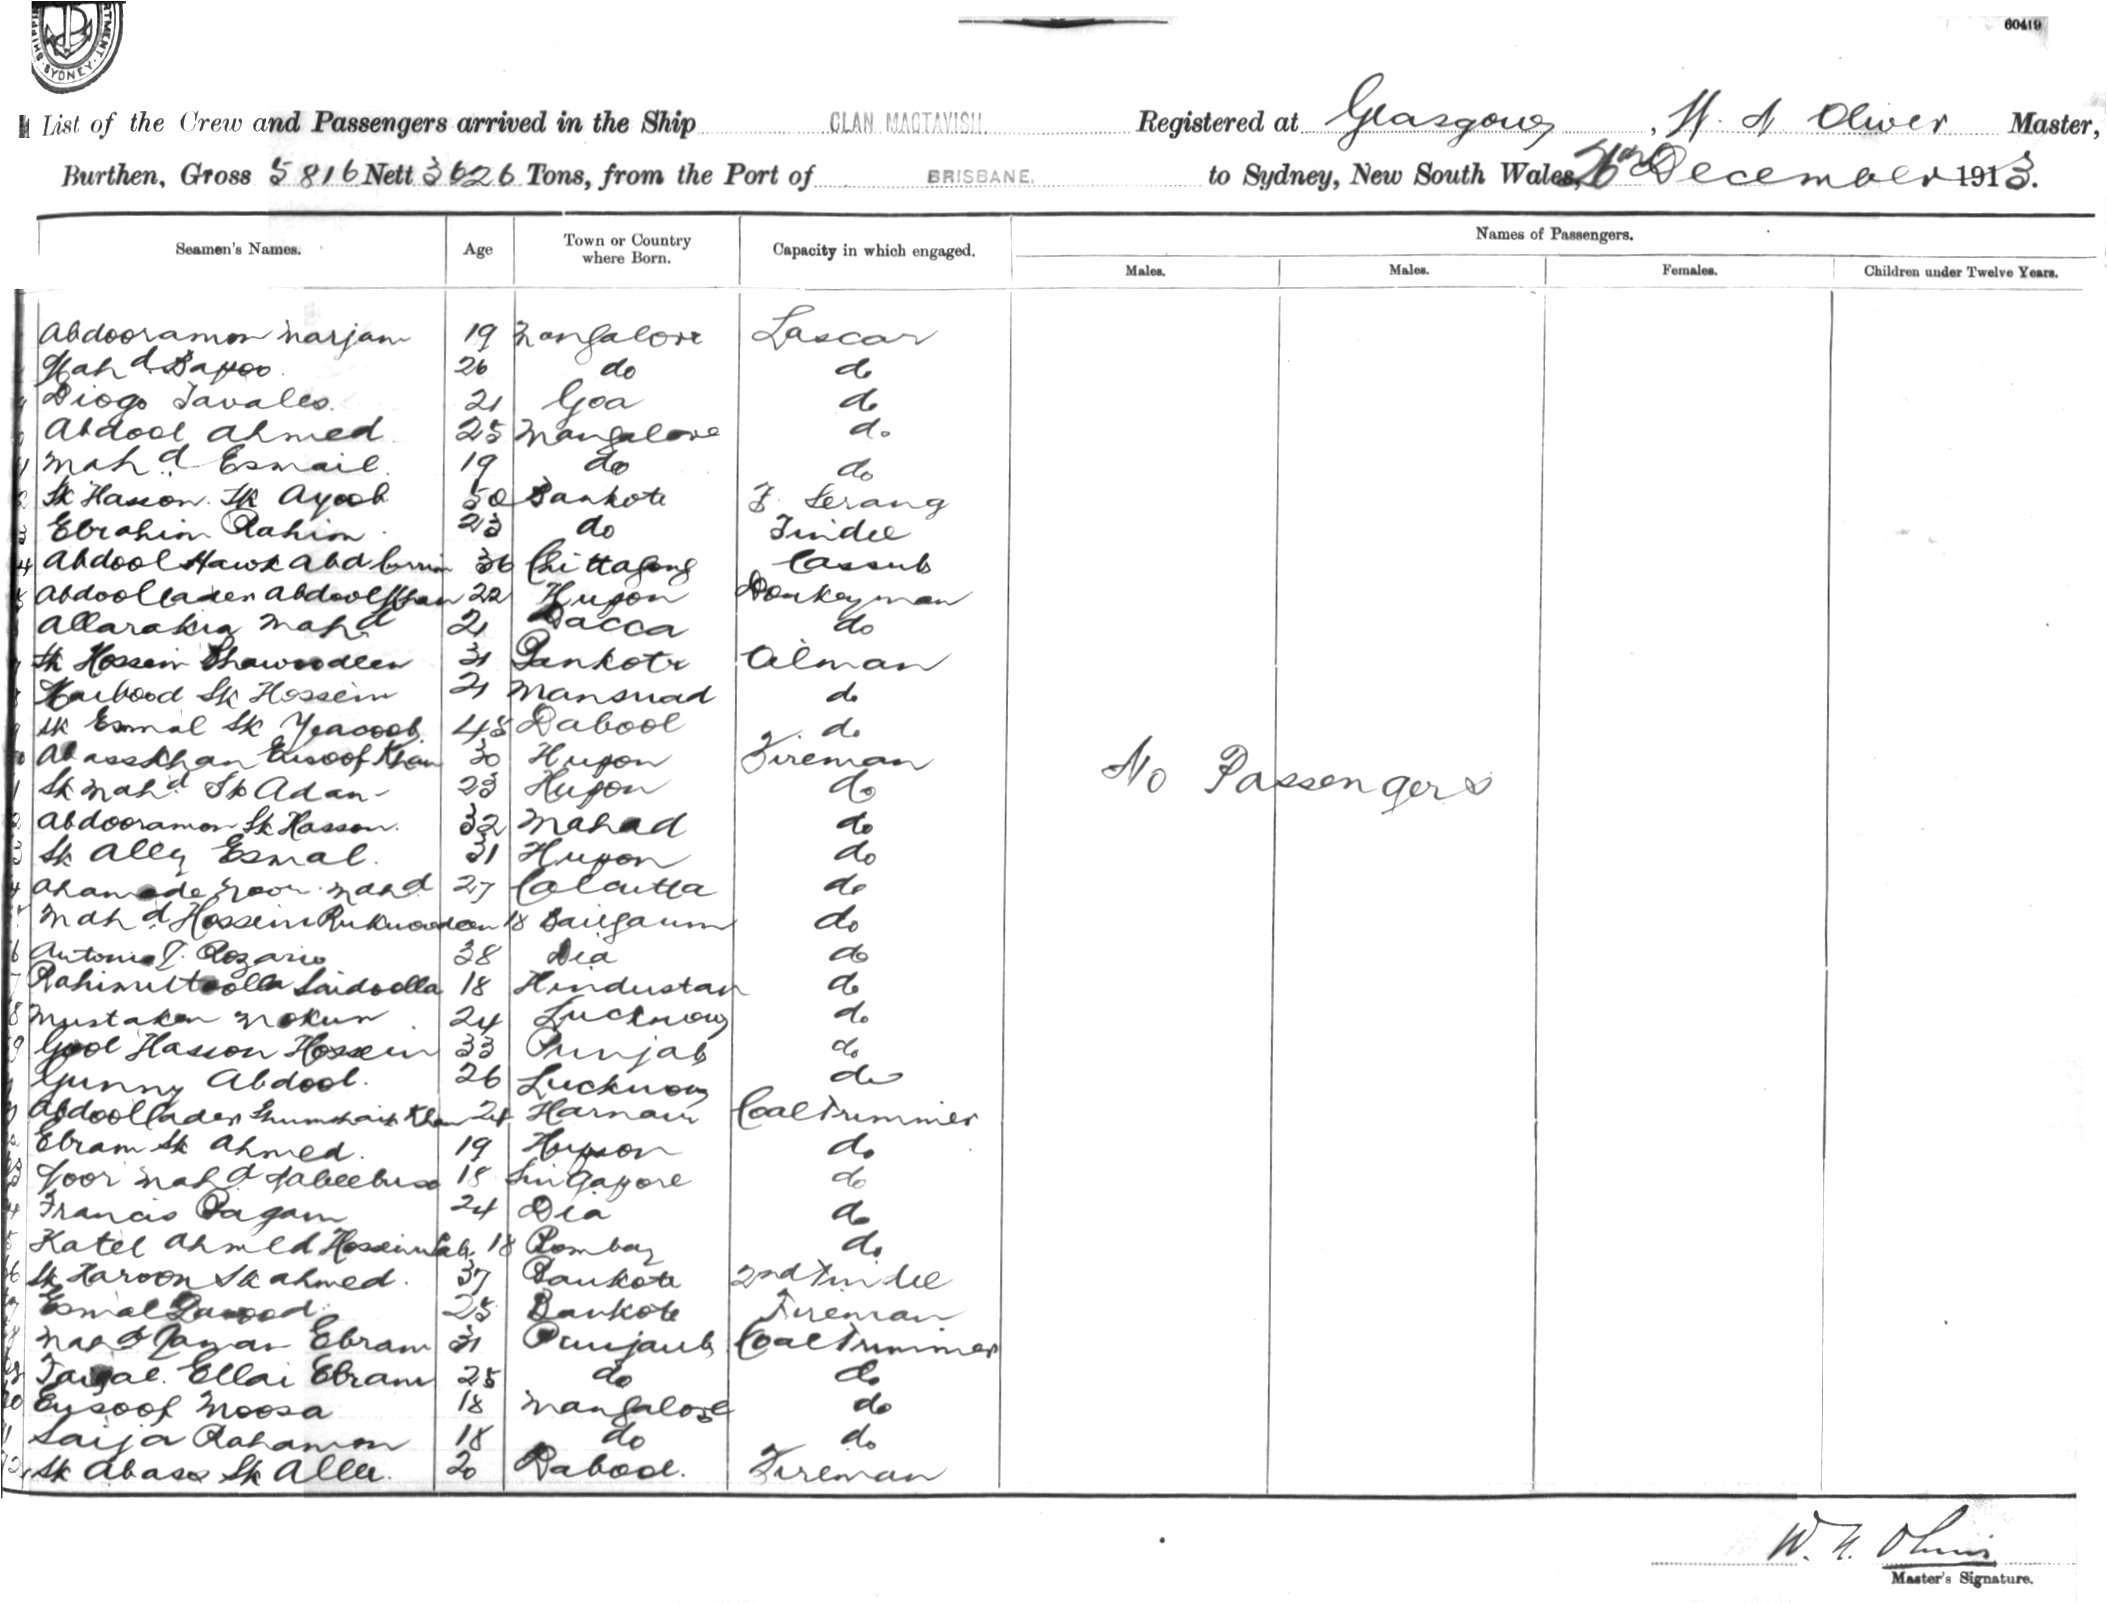 SYDNEY
60419
List of the Crew and Passengers arrived in the Ship CLAN MACTAVISH. Registered at Glasgow, W. N. Oliver Master,
Burthen, Gross 5816 Nett 3626 Tons, from the Port of BRISBANE. to Sydney, New South Wales, December 1913.
Seamen's Names. Age Town or Country where Born. Capacity in which engaged. Names of Passengers.
Males. Males. Females. Children under Twelve Years.
Abdooramon Marjam 19 Mangalore Lascar
Mahd Bapoo 26 do do
Diogo Tavales 21 Goa do
Abdool Ahmed 25 Mangalore do
Mahd Esmail 19 do do
Sk Hasson Sk Ayoob 50 Bankote F. Serang
Ebrahim Rahim 23 do Tindel
Abdool Hawk Abd 36 Chittagong Cassub
Abdool Cader Abdool 22 Hupon Donkeyman
Allarakia Mahd 21 Dacca do
Sk Hossein Shawoodeen 31 Bankote Oilman
Sk Hossein 21 do
Sk Esmal Sk Yeacoob 45 Dabool do
Abasskhan Eusoof Khan 30 Hupon Fireman
Sk Mahd Sk Adam 23 Hupon do
Abdooramon Sk Hasson 32 Mahad do
Sk Ally Esmal 31 Hupon do
Noor Mahd 27 Calcutta do
Mahd Hossein Ruknoodeen 18 Bailgaum do
Antonio J. Rozario 38 Dia do
Rahimutoolla Saidoolla 18 Hindustan do
Mustaken Mokun 24 Lucknow do
Gool Hasson Hossein 33 Punjab do
Gunny Abdool 26 Lucknow do
Abdool Cader Khan 24 Harnain Coal Trimmer
Ebram Sk Ahmed 19 Hupon do
Noor Mahd 18 Singapore do
Francis Pagam 24 Dia do
Katel Ahmed Hossein 18 Bombay do
Sk Haroon Sk Ahmed 37 Bankote 2nd Tindel
Esmal Dawood 25 Bankote Fireman
Mahd Ebram 31 Punjaub Coal Trimmer
Ellai Ebram 25 do do
Eusoof Moosa 18 Mangalore do
Saija Rahamon 18 do do
Sk Abass Sk Alli 20 Dabool Fireman
No Passengers
W. N. Oliver
Master's Signature.